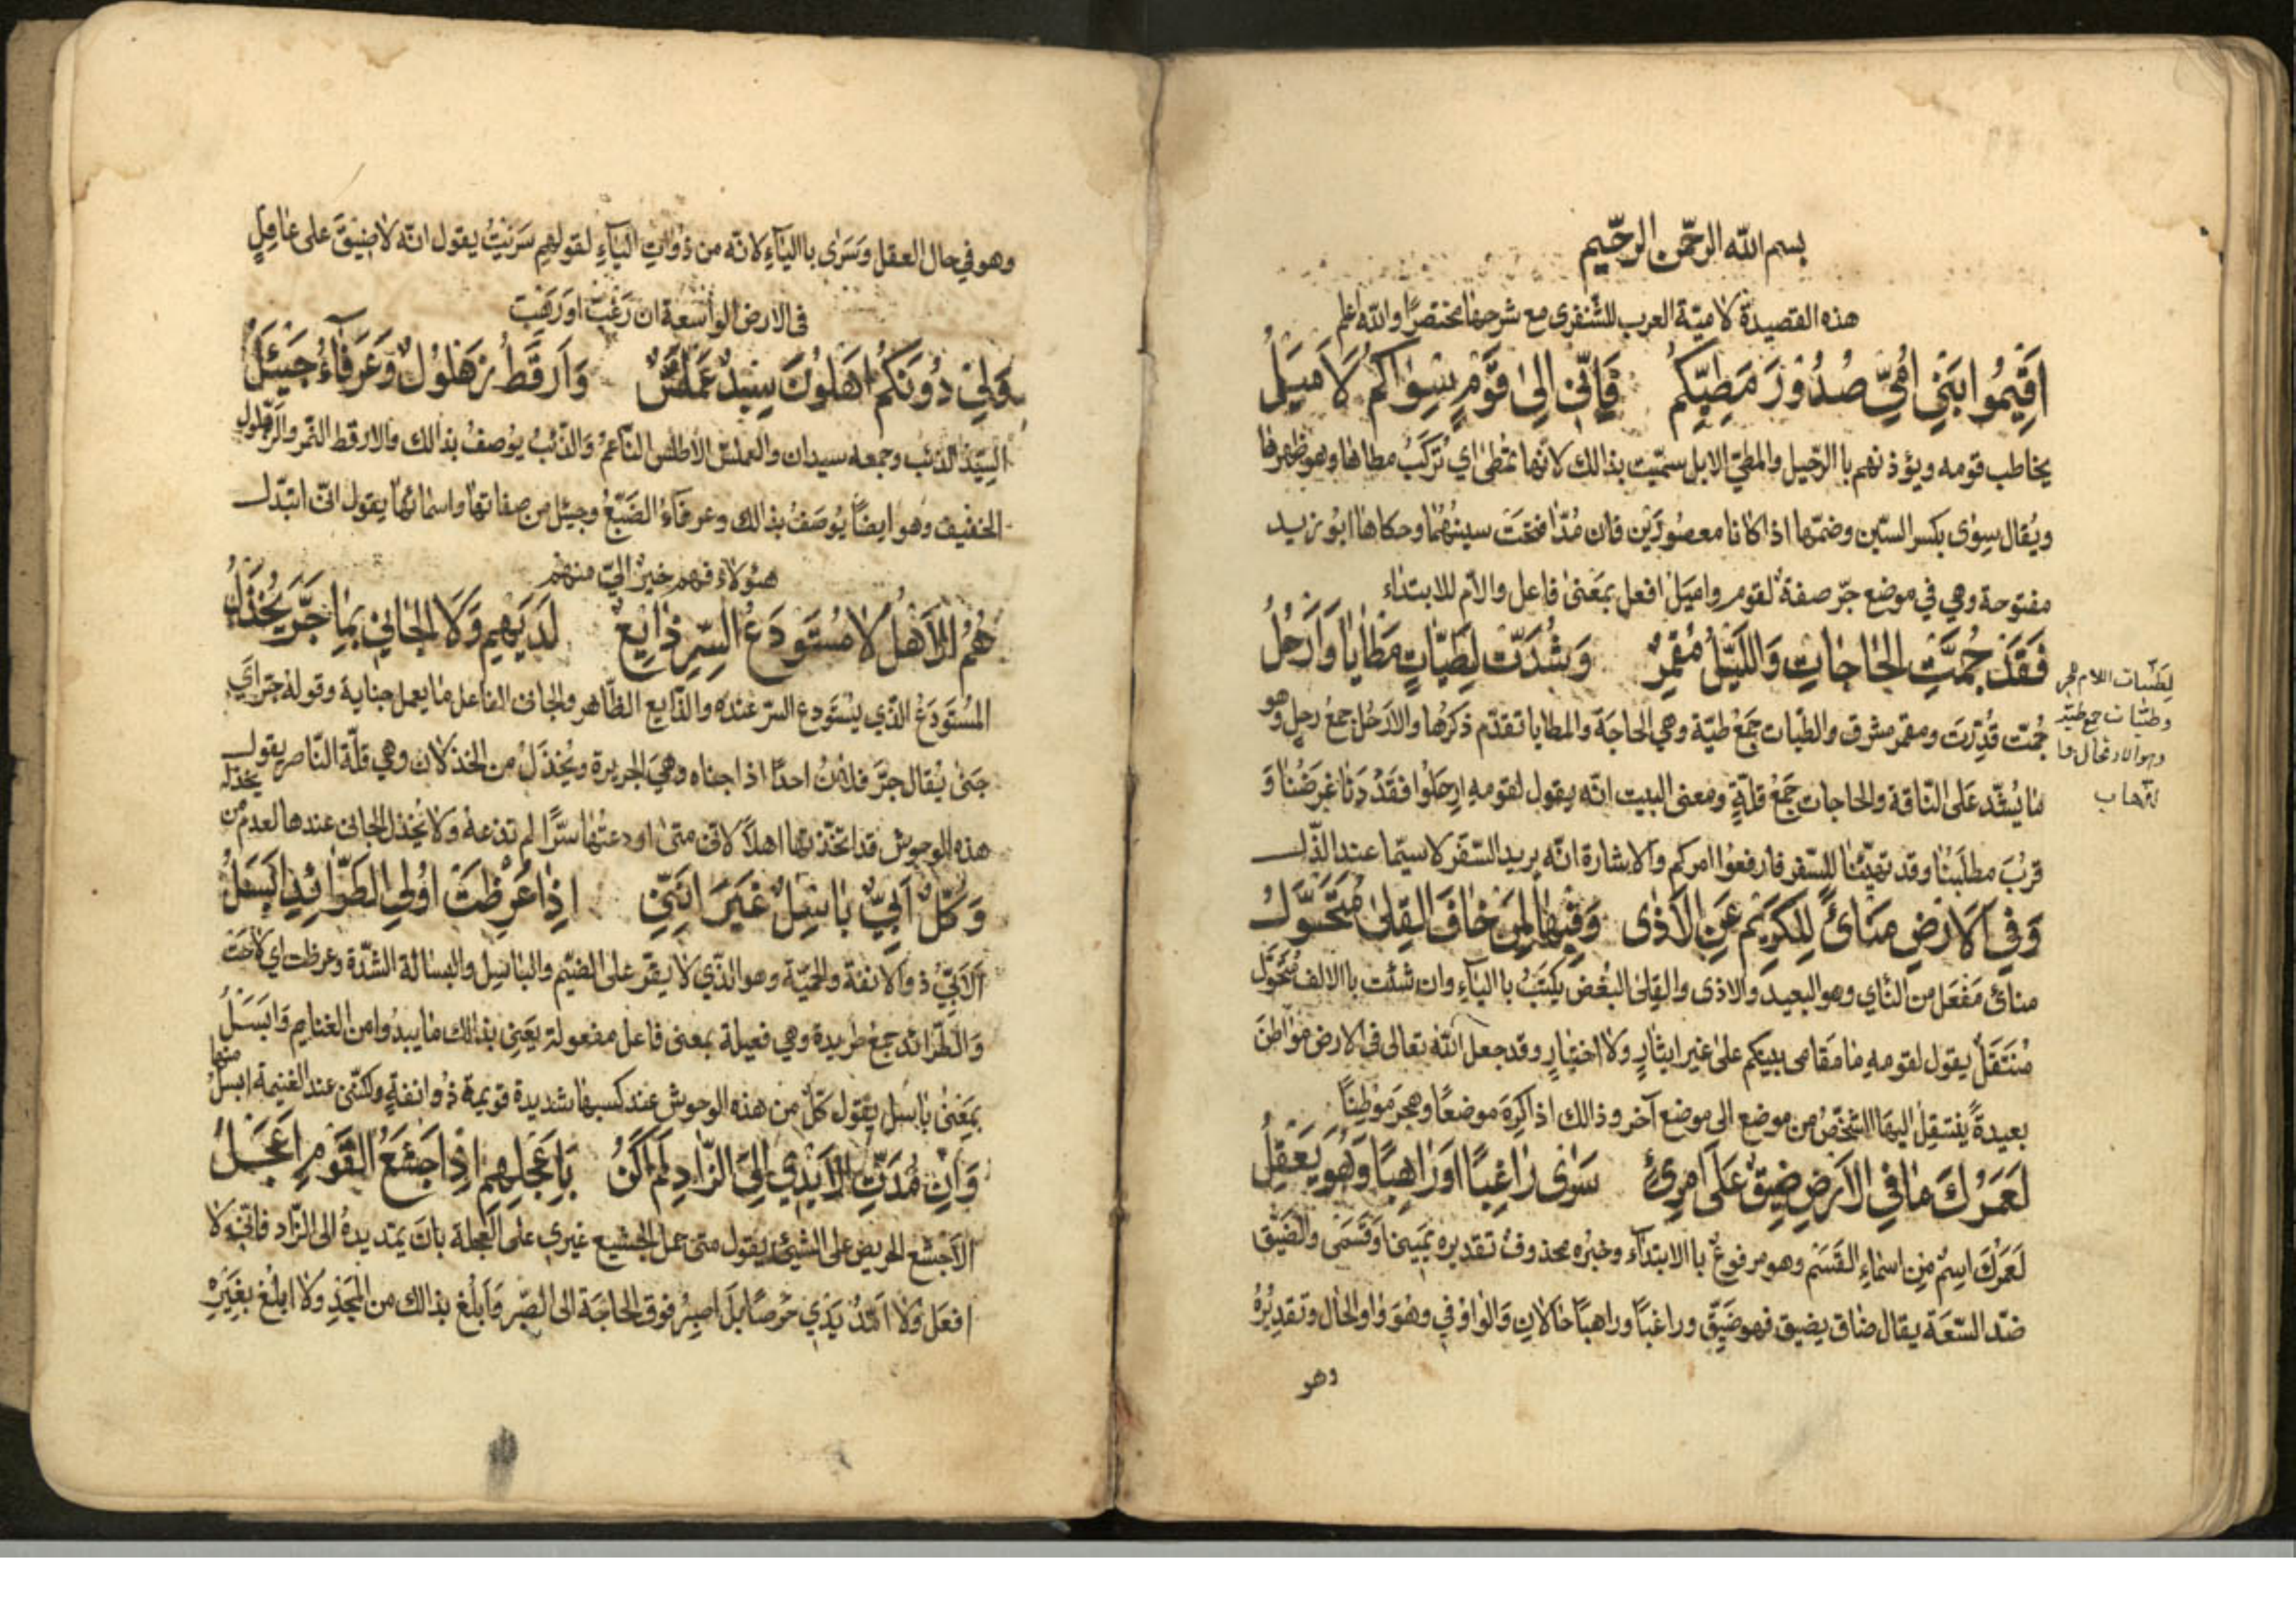 بسم الله الرحمن الرحيم
هذه القصيدة لامية العرب للشنفرى مع شرحها مختصرا والله اعلم
اَقِيمُوا بَنِي اُمِّيَ صُدُورَ مَطِيِّكُم فَاِنِّى اِلى قَوْمٍ سِوٰاكُم لَاَميَلُ
يخاطب قومه ويؤذنهم باالرّحيل والمطيّ الابل سمّيت بذالك لانّها تمُطىٰ اي تُركَبُ مطاها وهو ظهرها
ويُقال سِوٰى بكسر السّين وضمّها اذا كانا مقصورَين فان مُدّا فتحت سينهُمٰا وحكاها ابُو زيد
مفتوحة وهي في موضع جرّ صفة لقوم واميَل افعل بمَعنىٰ فاعل والام للابتداء
فَقَدْ حُمَّتِ الحٰاجٰاتِ وَاللَّيْلُ مُقْمِرٌ وَشُدَّت لِطَيّاتٍ مَطٰايٰا وَاَرحُلُ
حُمّت قُدِّرَت ومقمر مشرق والطّيات جَمَعُ طيّة وهي الحاجَة والمطايا تقدّم ذكرها والارحُل جمعُ رحل وهو
مٰا يُشَدّ عَلى النّاقة والحاجات جَمْعُ قلّةٍ ومعنى البيت انّه يقول لقومهِ ارحَلوا فقَدْ دَنٰا غرَضُنٰا وَ
قرُبَ مطلَبُنٰا وقد تهيّئنٰا للسّفر فارفعوا امركم والاشارة انّه يريد السّفر لاسيّما عند الذّل
وَفِي الاَرضِ مَنٰائً لِلكَرِيْمِ عَنِ الاَذٰى وَفِيهٰا لِمَن خٰافَ القِلىٰ مُتَحَوَّلُ
منائ مَفْعَل من النّاي وهو البعيد والاذى والقِلىٰ البُغض يكتَبُ باالياءِ وان شئت باالالف مُتَحَوَّل
مُنتَقَلٌ يقول لقومهِ مٰا مَقٰامى بينكم علىٰ غير ايثٰارٍ ولا اختيٰارٍ وقد جعل الله تعالى فى الارض موٰاطنَ
بعيدةً ينتقِلُ اليهَا الشخصُ من موضع الى موضع آخر وذالك اذا كَرِهَ موضعًا وهجرَ موطِنًا
لَعَمرُكَ مٰا فِي الاَرضِ ضِيقٌ عَلَى امرِئٍ سَرٰى رٰاغِبًا اَو رٰاهِبًا وَهُوَ يَعقِلُ
لَعَمرُكَ اسِمٌ مِن اسمٰاءِ القَسَم وهو مرفوعٌ باالابتدآء وخبرُه محذوفٌ تقديره يَمينى اَو قَسَمى والضّيق
ضدّ السّعَة يقال ضاق يضيق فهو ضَيِّق وراغبًا وراهبًا حٰالانِ وَالوٰاوُ في وهُوَ وٰاو الحٰال وتقديرُهُ
وهو
لِطَيّات اللام جر
وطيّات جمع طية
وهو الارتحال
وهو في حال العقل وَسَرٰى باالياءِ لانّه من ذوٰاتِ اليآءِ لقولهِم سَرَيْتُ يقول انّه لا ضِيقَ علىٰ عٰاقِلٍ
فى الارض الوٰاسعة ان رَغِبَ اَو رَهَبَ
وَلِيْ دُونَكُم اَهلُونَ سِيْدٌ عَمَلَّسٌ وَاَرقَطُ زهلُولٌ وَعَرفَآءُ جَيْئَلُ
السِّيْدُ الذئب وجمعه سيدان والعملس الاطلس النّاعمُ والذّئبُ يوُصفُ بذالك والارقط النّمر والزّهلول
الخفيف وهو ايضًا يُوصَفُ بذالك وعرفآءُ الضَّبُعُ وجيئل من صفاتهٰا واسمٰائهٰا يقول انّى ابتدّل
هٰئولاء فهم خيرٌ اليّ منهُم
هُمُ الاَهلُ لا مُستَودَعُ السِّرِ ذٰايِعٌ لَدَيهِم وَلا الجٰاني بِمٰا جَرَّ يُخْذَلُ
المُستَودَعُ الّذي يسْتَودع السّر عندَه والذّايع الظّاهر والجانى الفاعل مٰا يعمل جناية وقوله جرّ اي
جَنىٰ يُقال جرَّ فلانٌ احدًا اذا جناه وهيَ الجريرة ويُخْذَلُ من الخذلان وهي قلّة النّاصر يقول
هذه الوحوش قد اتخذتها اهلًا لانّى متىٰ اودعتُهٰا سرًّا لم تذعه ولا يُخذل الجانى عندها لعدم من يخذله
وَكُلٌّ اَبِيٌّ بٰاسِلٌ غَيرَ انَّنِي اِذٰا عَرضَت اُولىٰ الطَّرٰائِدِ اَبسَلُ
اَلاَبيُّ ذو الانفة والحميّة وهو الّذي لا يقرّ على الضَّيم والباسِل والبسالة الشّدّة وعرضت اي لاحت
وَالطّرٰائد جمع طريدة وهي فعيلة بمعنى فاعل مفعولة يَعنِى بذالك مٰا يبدُوا من الغنايم وَابسَلُ
بمَعنىٰ باسِل يقول كلّ من هذه الوحوش عند كسبها شديدة قويمة ذو انفةٍ ولكنّى عند الغنيمة ابسَلُ منها
وَاِن مُدَّتِ الاَيْدِي اِلى الزّٰادِ لَم اَكُن بِاَعْجَلِهِم اِذ اَجشَعُ القَومِ اَعجَلُ
الاَجشع الحريص على الشّيئ يقول متىٰ عمل الجشيع غيرى على العجلة بان يمتد يدهُ الى الزّاد فانّى لا
افعَل وَلا اَمُدُّ يَدَي حرصًا بَل اصبِرُ فوق الحاجَة الى الصّبر وَاَبلُغ بذالك من المَجدِ ولا ابلُغ بغَيرِهِ